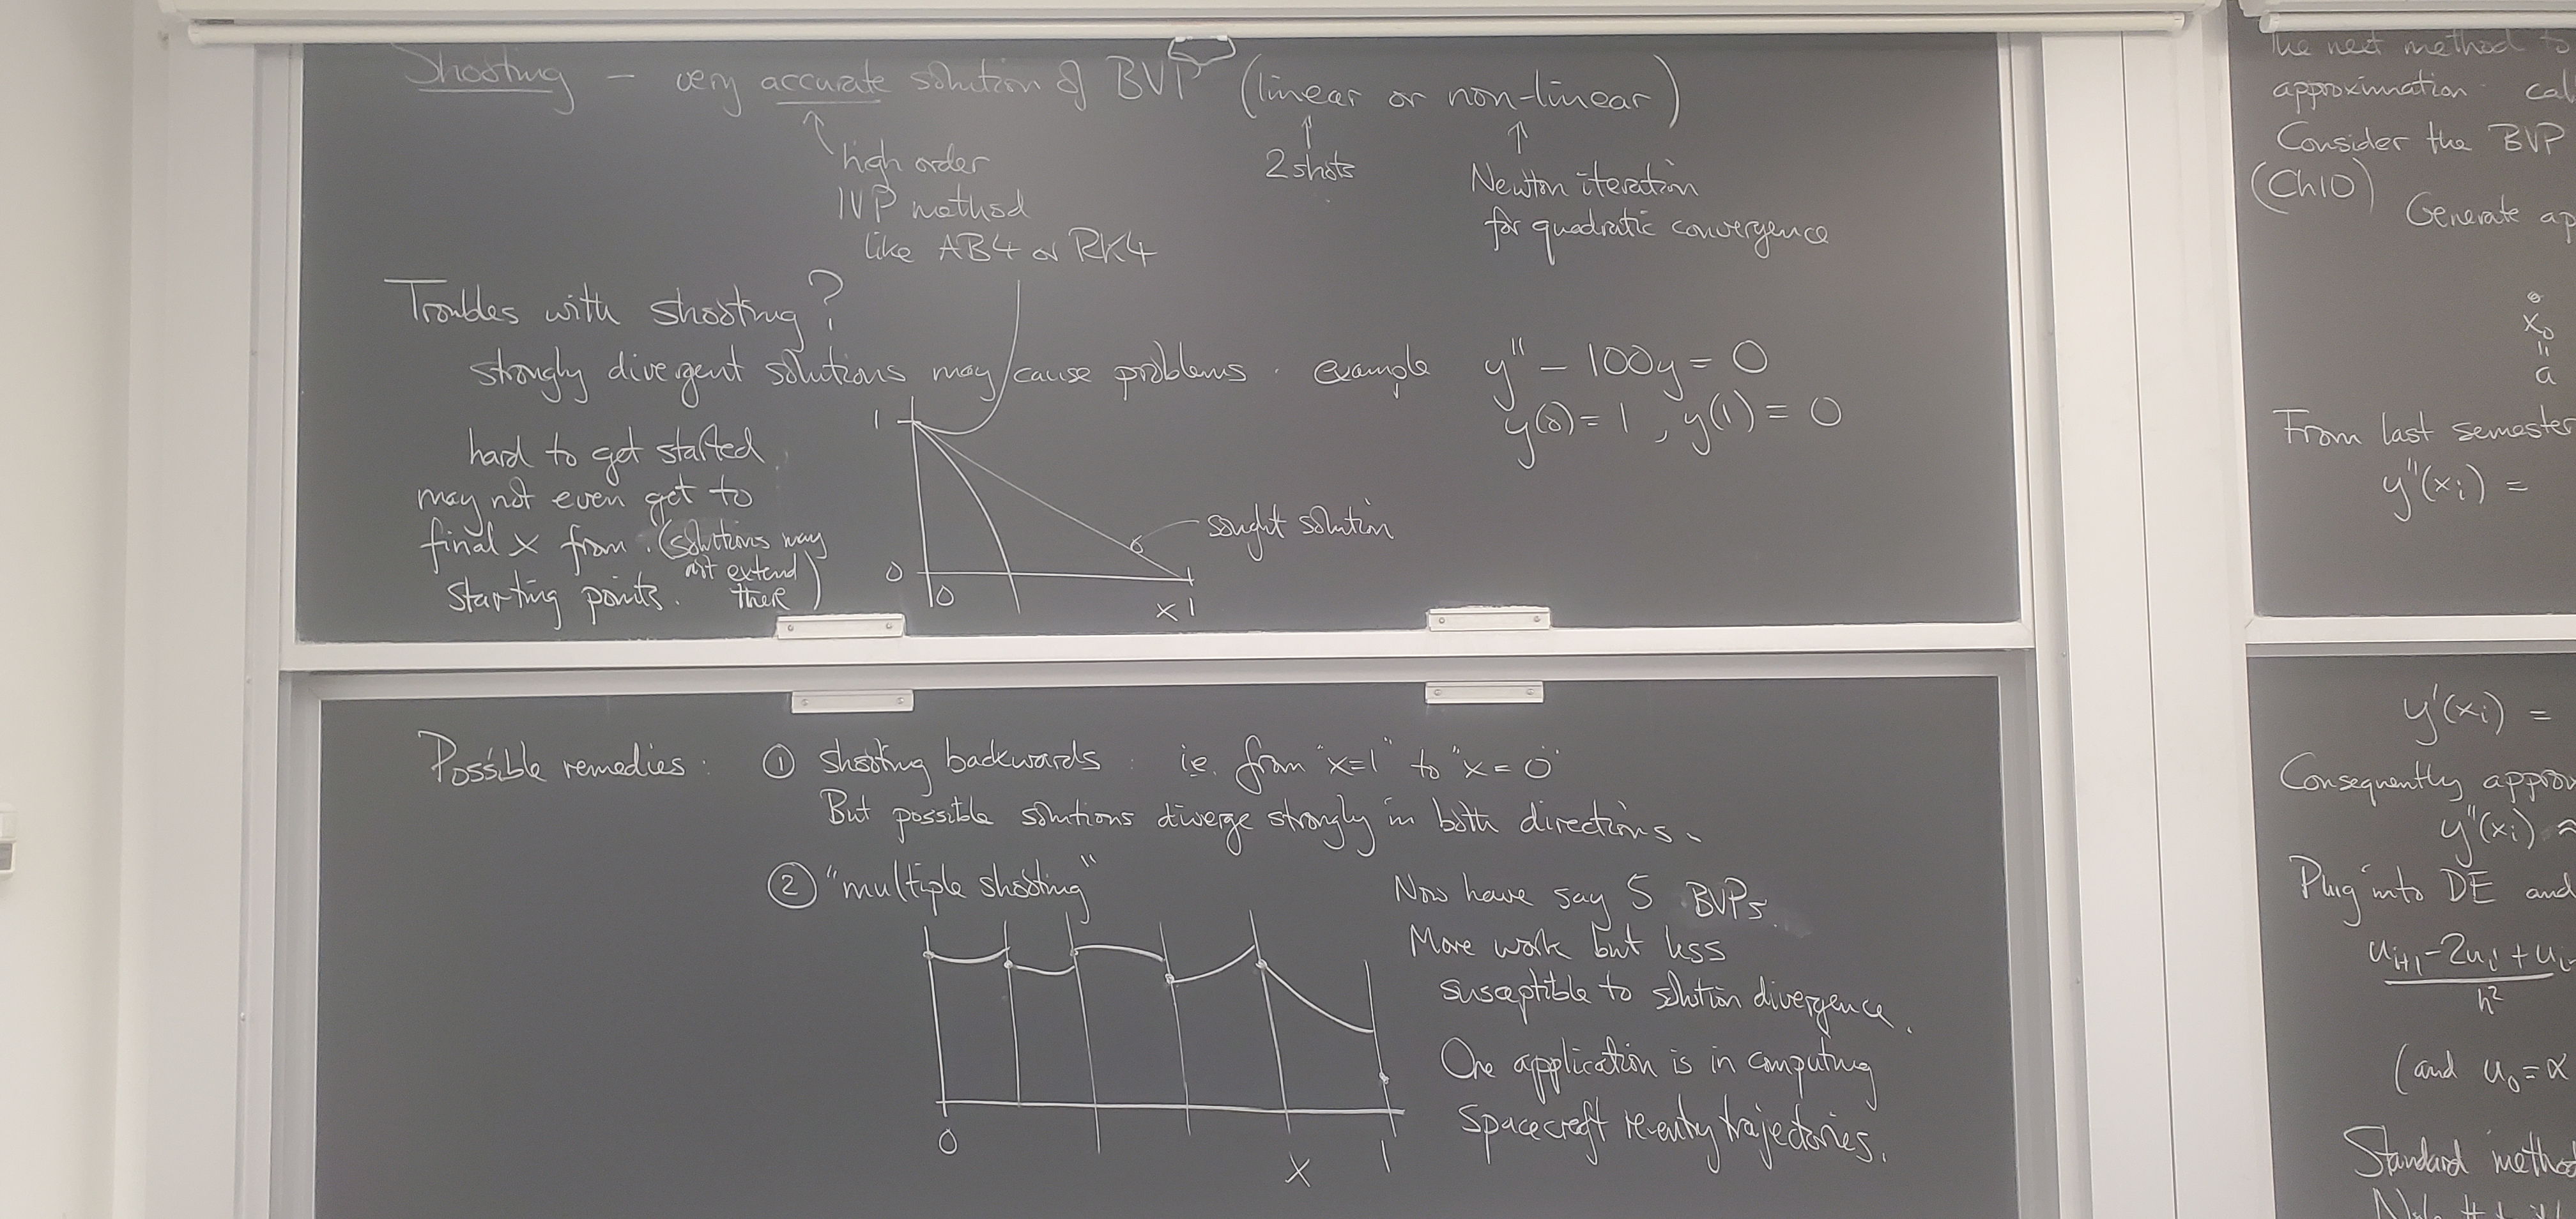 Shooting – very accurate solution of BVP (linear or non-linear)
high order
IVP method
like AB4 or RK4
2 shots
Newton iteration
for quadratic convergence
Troubles with shooting?
strongly divergent solutions may cause problems. example y'' – 100y = 0
y(0) = 1, y(1) = 0
hard to get started
may not even get to
final x from (solutions may
not extend
starting points. there)
1
0
0
x 1
sought solution
Possible remedies: ① shooting backwards: i.e. from "x=1" to "x=0"
But possible solutions diverge strongly in both directions.
② "multiple shooting"
Now have say 5 BVPs
More work but less
susceptible to solution divergence.
One application is in computing
spacecraft re-entry trajectories.
0
x
1
The next method to
approximation cal
Consider the BVP
(Ch10)
Generate ap
x₀
"
a
From last semester
y''(xᵢ) =
y'(xᵢ) =
Consequently approx
y''(xᵢ) ≈
Plug into DE and
uᵢ₊₁ – 2uᵢ + uᵢ₋
h²
(and u₀ = α
Standard method